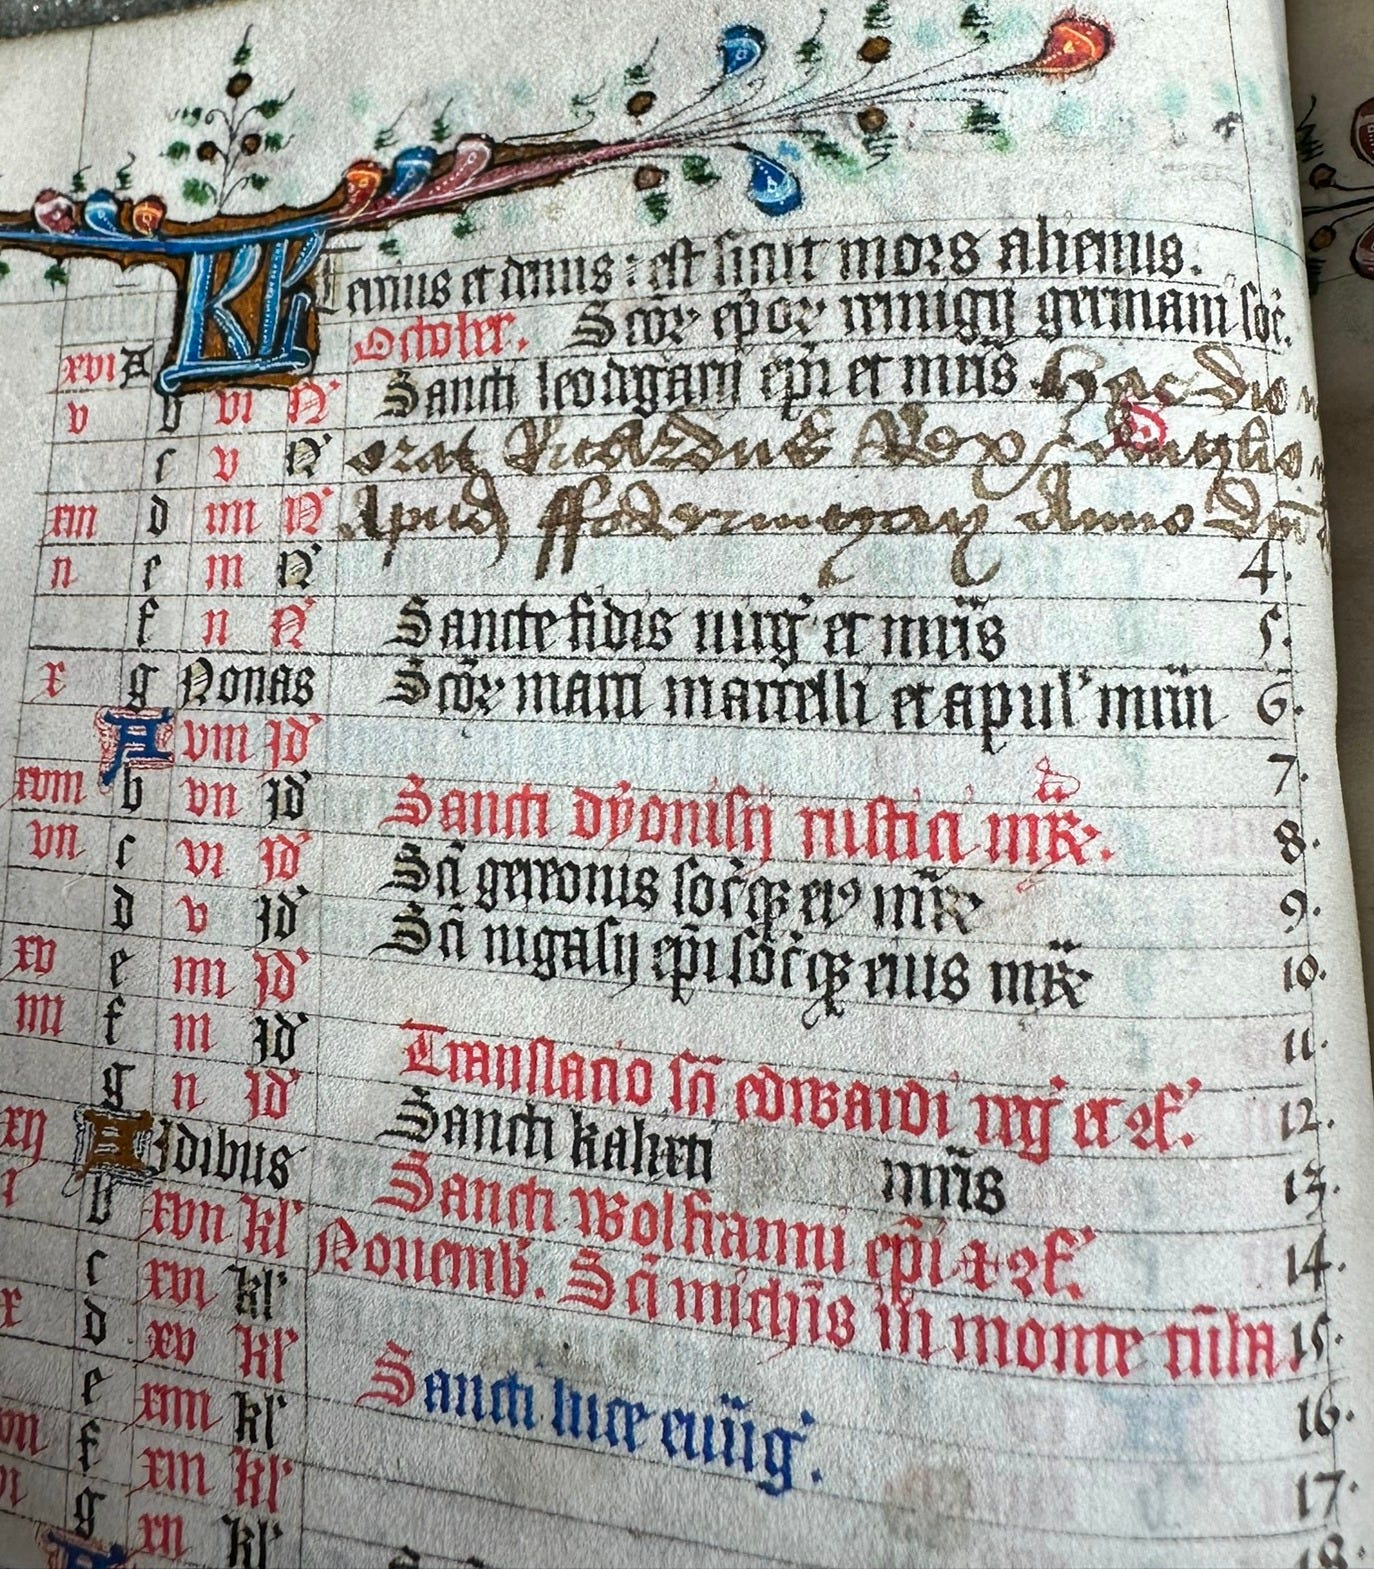 KL Tercius et denus : est sicut mors alienus.
xvi A October. Scōr ep̄or remigij germani soc̄.
v b vi N' Sancti leodegarii ep̄i et mr̄is Hac die
c v N' erat Ricardus Rex Anglie
xiii d iiii N' Apud ffodermgay Anno Dn̄i
ii e iii N' 4.
f ii N' Sancte fidis uirg' et mr̄is 5.
x g Nonas Scōr marci marcelli et apul' mr̄m 6.
A viii Id' 7.
xviii b vii Id' Sancti dyonisij rustici mr̄. 8.
vii c vi Id' Sc̄i gereonis soc̄q; ei9 mr̄ 9.
d v Id' Sc̄i nigasij ep̄i soc̄q; eius mr̄ 10.
xv e iiii Id' 11.
iiii f iii Id' Translacio sc̄i edwardi reg' et 2f'. 12.
g ii Id' Sancti kalixti mr̄is 13.
xij A Idibus Sancti wolfranni ep̄i 7 2f'. 14.
i b xvii kl' Nouemb'. Sc̄i mich̄is in monte tu̅ba 15.
c xvi kl' 16.
x d xv kl' Sancti luce euu̅g'. 17.
e xiiii kl' 18.
f xiii kl'
g xii kl'